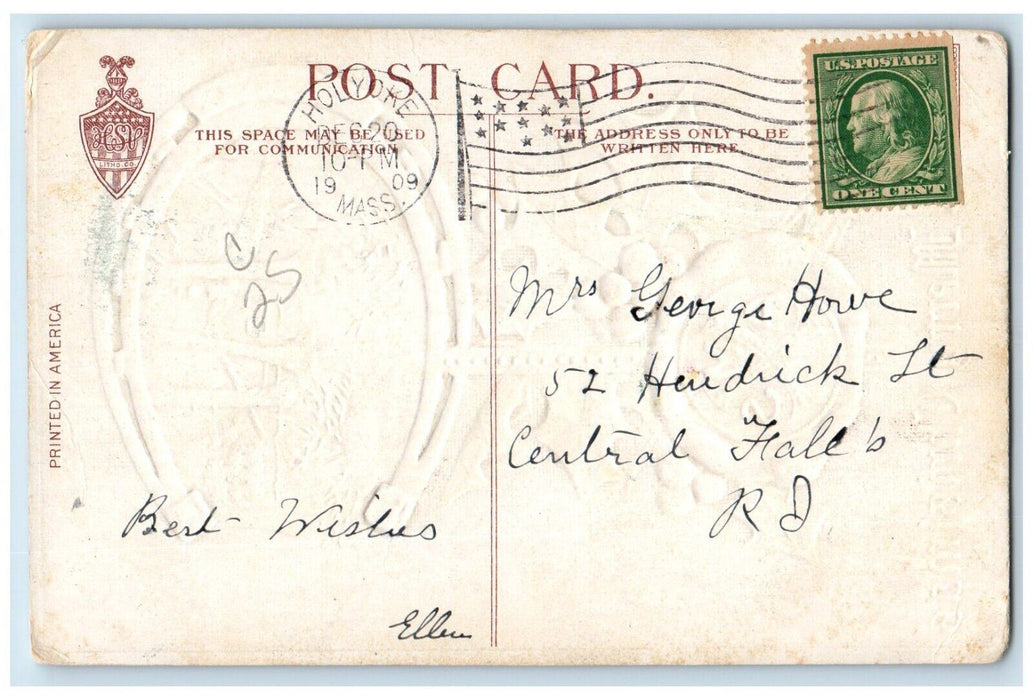 POST CARD.
THIS SPACE MAY BE USED
FOR COMMUNICATION
THE ADDRESS ONLY TO BE
WRITTEN HERE
HOLYOKE
10-PM
1909
MASS.
U.S. POSTAGE
ONE CENT
LITHO. CO.
PRINTED IN AMERICA
25c
Mrs George Howe
52 Hendrick St
Central Fall's
R I
Best Wishes
Ellen